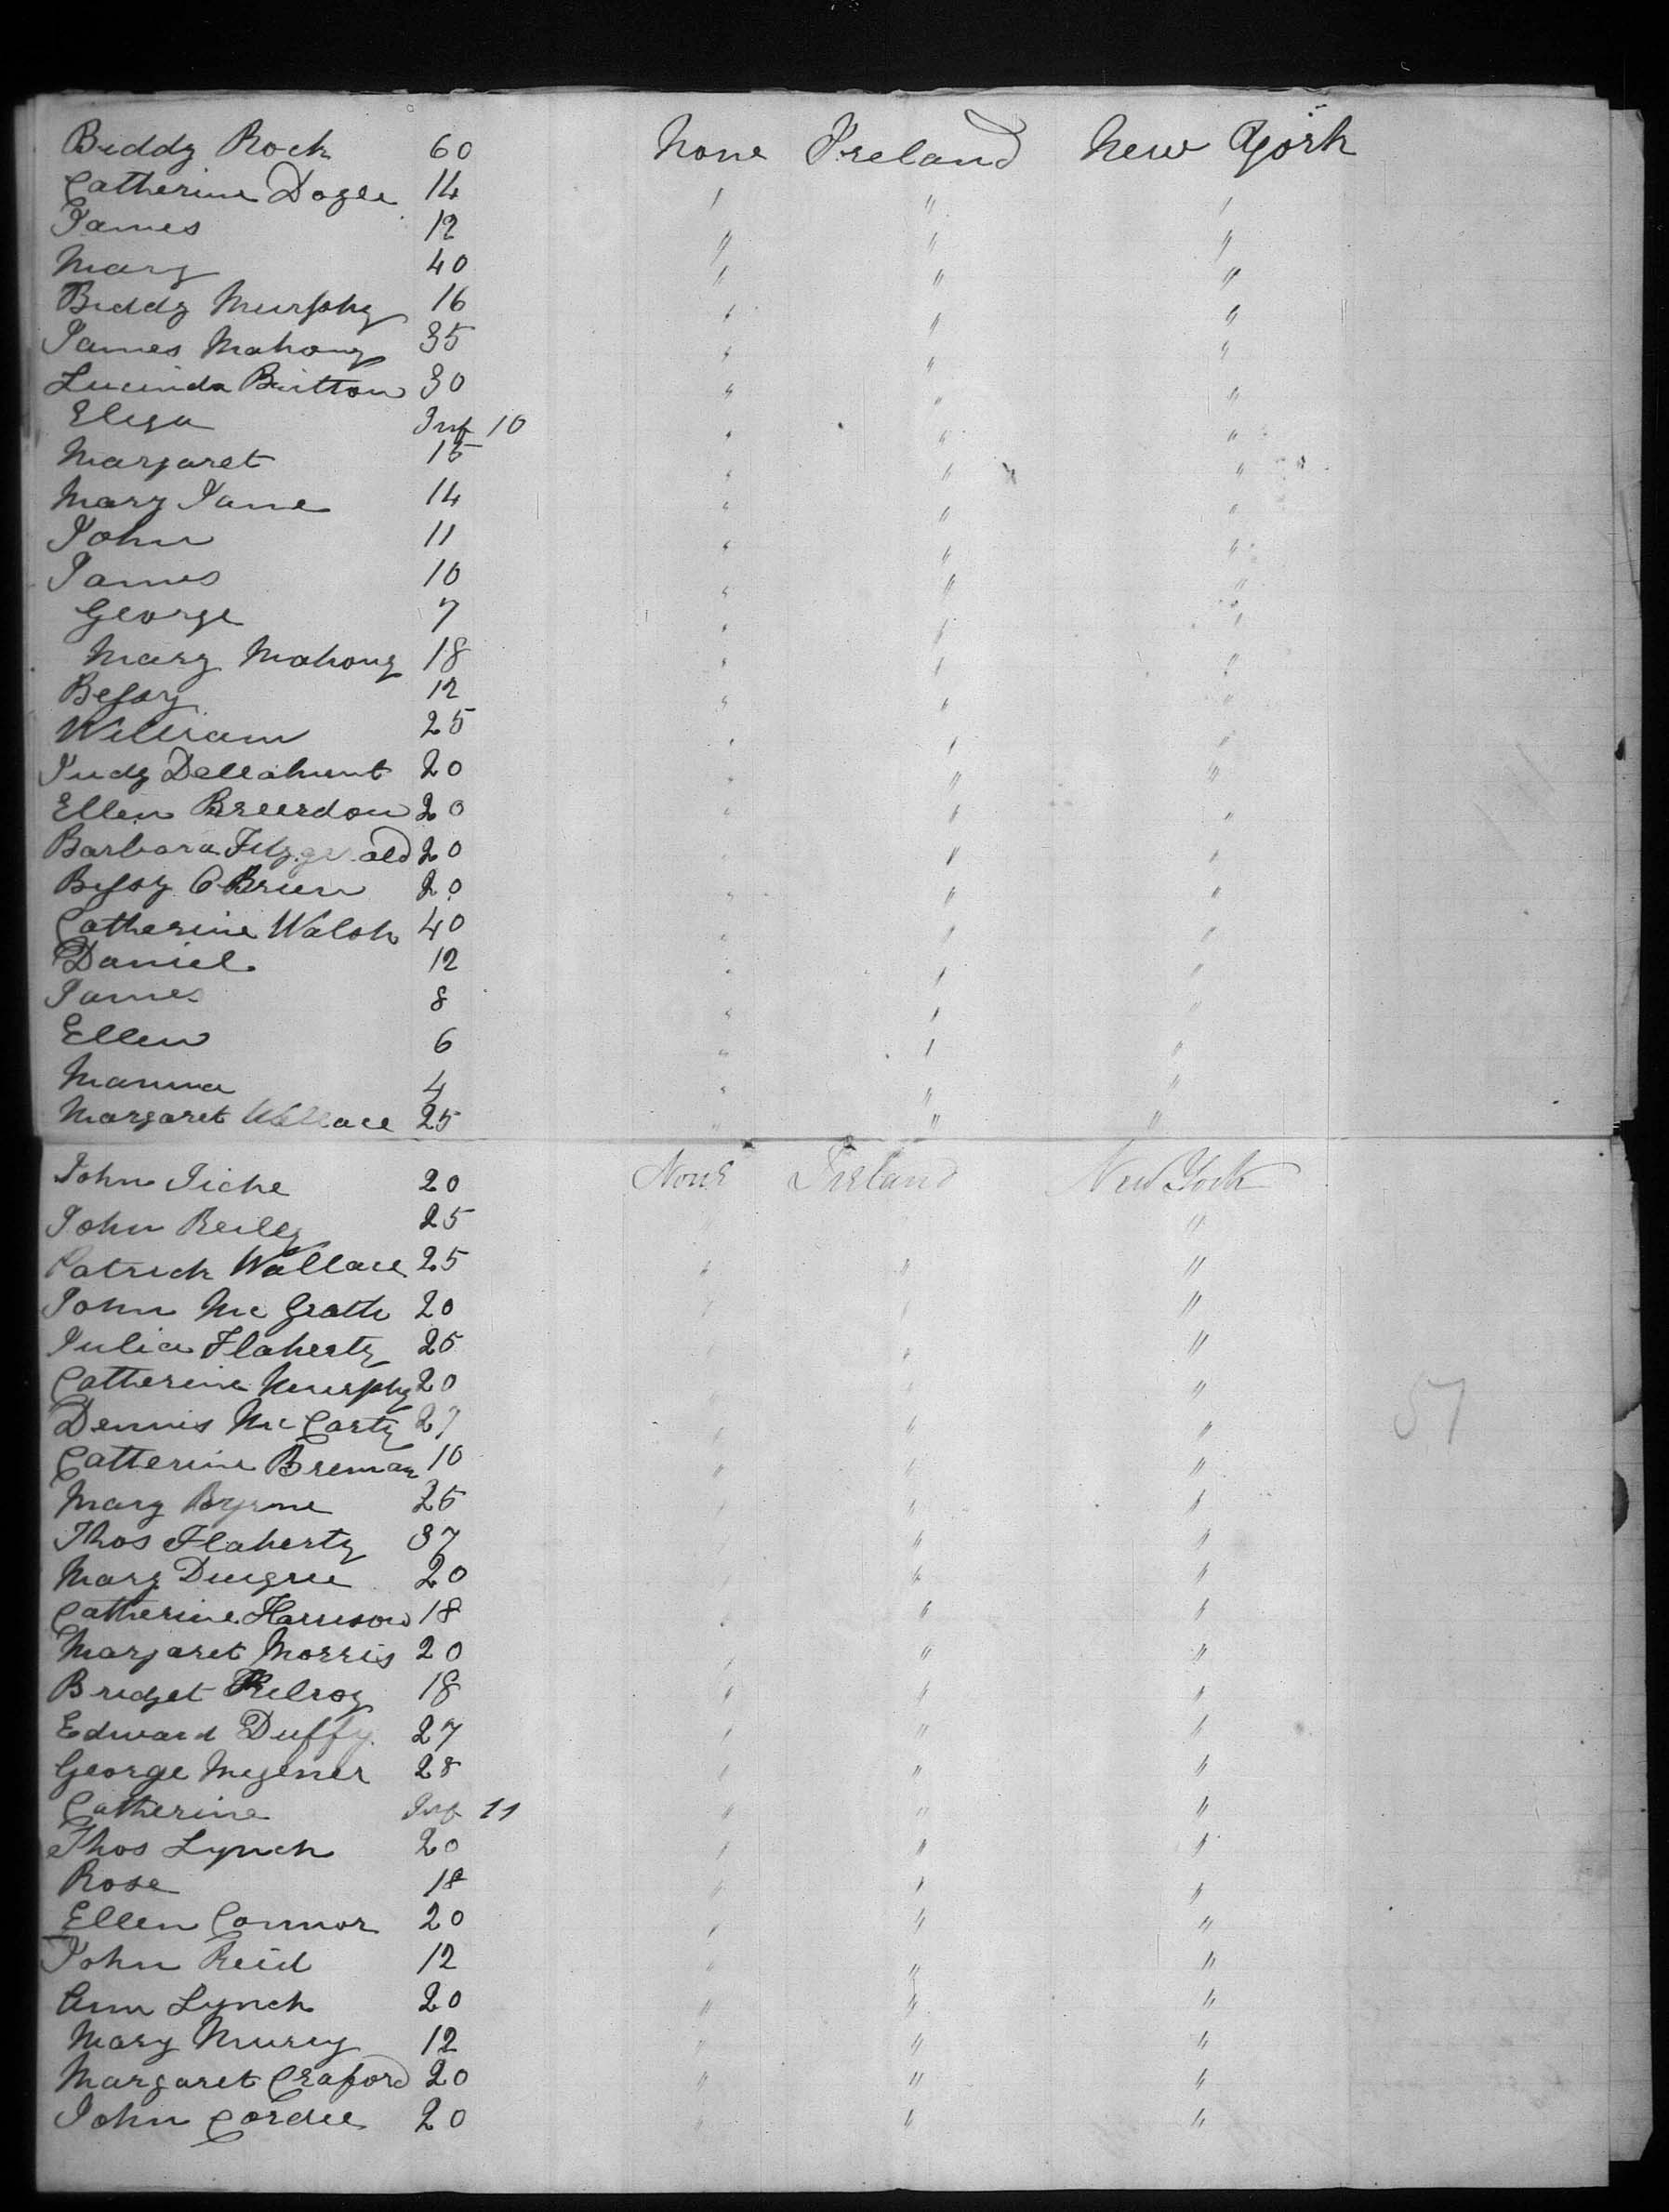 Biddy Rock 60 None Ireland New York
Catherine Dogle 14 " " "
James 12 " " "
Mary 40 " " "
Biddy Murphy 16 " " "
James Mahony 35 " " "
Lucinda Britton 30 " " "
Eliza Inf 10 " " "
Margaret 15 " " "
Mary Jane 14 " " "
John 11 " " "
James 10 " " "
George 7 " " "
Mary Mahony 18 " " "
Bessy 12 " " "
William 25 " " "
Judy Dellahunt 20 " " "
Ellen Breerdon 20 " " "
Barbara Fitzgerald 20 " " "
Bessy O Brien 20 " " "
Catherine Walsh 40 " " "
Daniel 12 " " "
James 8 " " "
Ellen 6 " " "
Manna 4 " " "
Margaret Wallace 25 " " "
John 20 None Ireland New York
John Reiley 25 "
Patrick Wallace 25 " " "
John Mc Grath 20 " " "
Julia Flaherty 25 " " "
Catherine Murphy 20 " " "
Dennis Mc Carty 27 " " "
Catterine Brenan 10 " " "
Mary Byrne 25 " " "
Thos Flaherty 37 " " "
Mary 20 " " "
Catherine Harrison 18 " " "
Margaret Morris 20 " " "
Bridget 18 " " "
Edward Duffy 27 " " "
George 28 " " "
Catherine Inf 11 " " "
Thos Lynch 20 " " "
Rose 18 " " "
Ellen Connor 20 " " "
John Reid 12 " " "
Ann Lynch 20 " " "
Mary 12 " " "
Margaret Craford 20 " " "
John Cordee 20 " " "
57